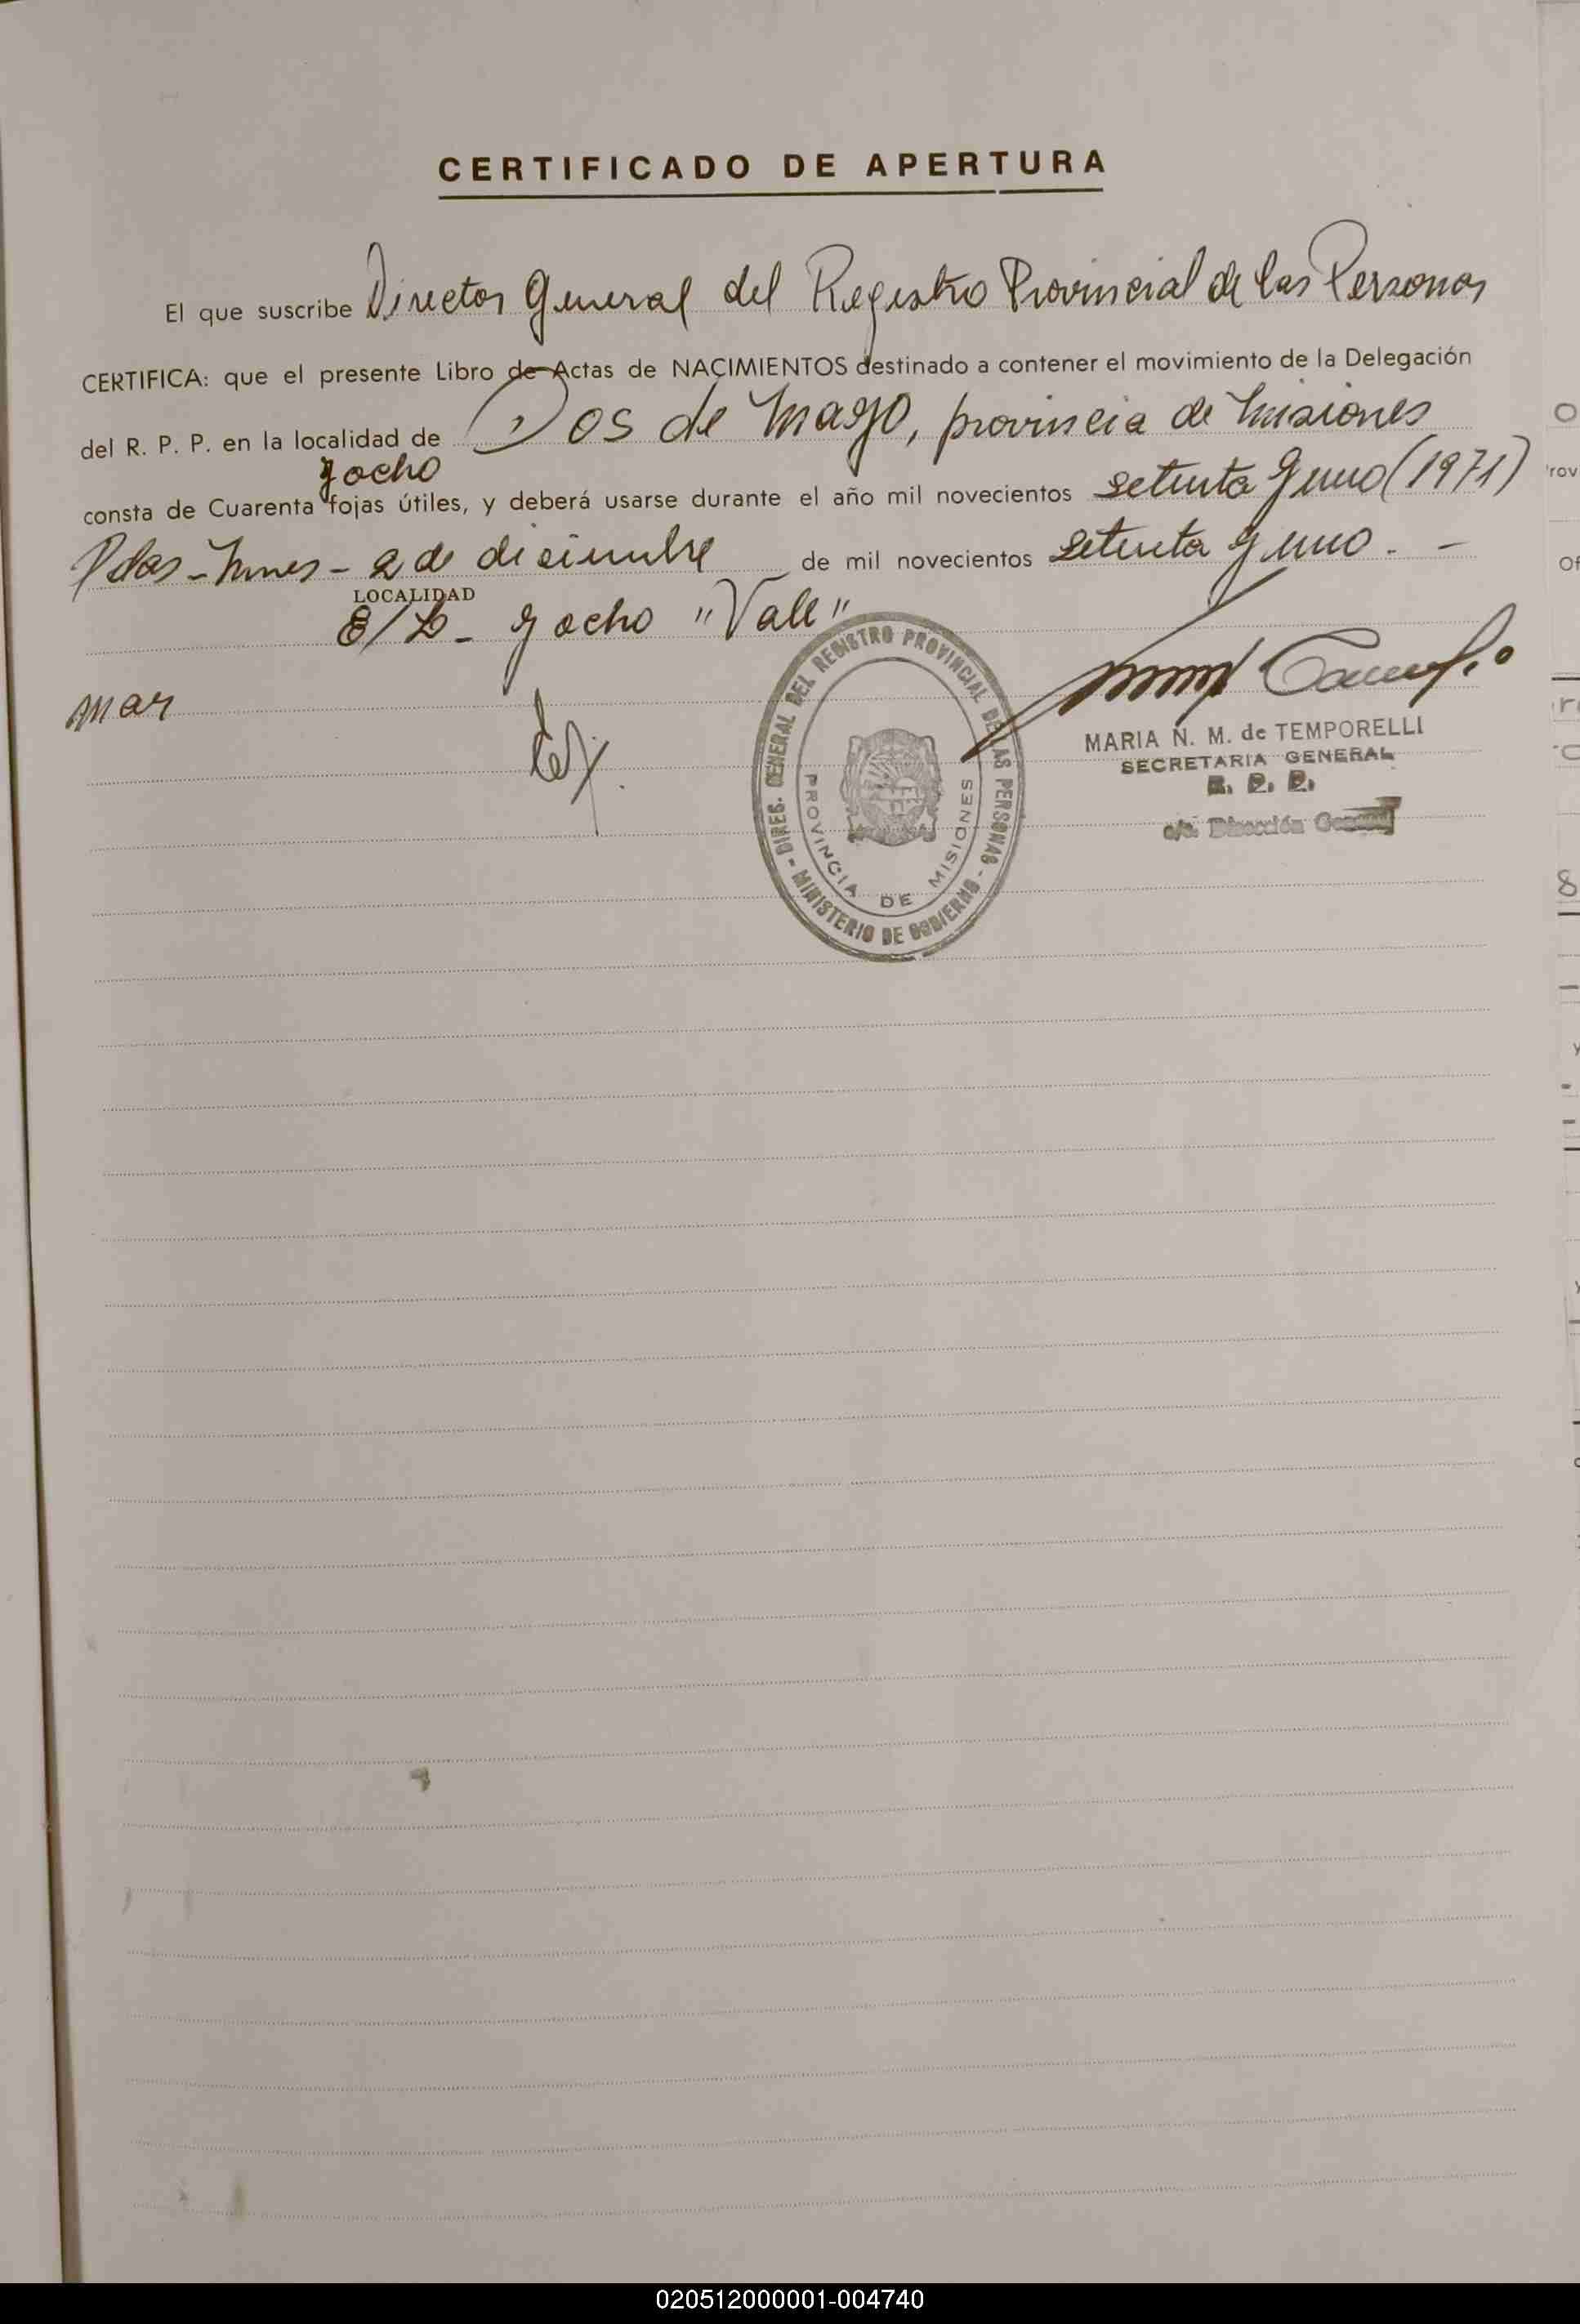 CERTIFICADO DE APERTURA
El que suscribe Director General del Registro Provincial de las Personas
CERTIFICA: que el presente Libro de Actas de NACIMIENTOS destinado a contener el movimiento de la Delegación
del R. P. P. en la localidad de Dos de Mayo, provincia de Misiones
y ocho
consta de Cuarenta fojas útiles, y deberá usarse durante el año mil novecientos setenta y uno (1971)
Pdas - Mnes - 2 de diciembre de mil novecientos setenta y uno. -
LOCALIDAD
E/L - y ocho "Vale"
mar
DIREC. GENERAL DEL REGISTRO PROVINCIAL DE LAS PERSONAS - MINISTERIO DE GOBIERNO -
PROVINCIA DE MISIONES
MARIA N. M. de TEMPORELLI
SECRETARIA GENERAL
R. P. P.
a/c. Dirección General
020512000001-004740